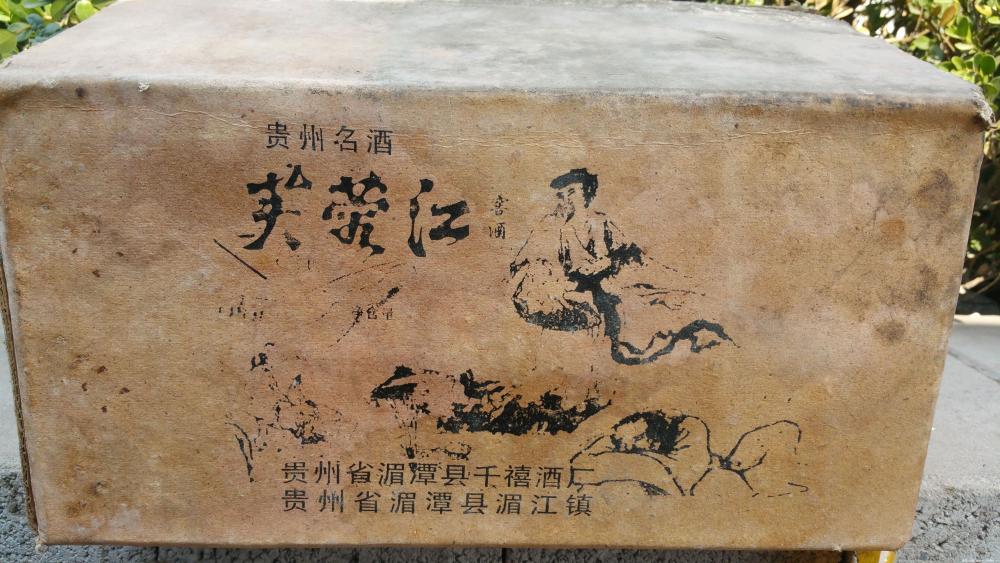 贵州名酒
芙蓉江
窖酒
贵州省湄潭县千禧酒厂
贵州省湄潭县湄江镇